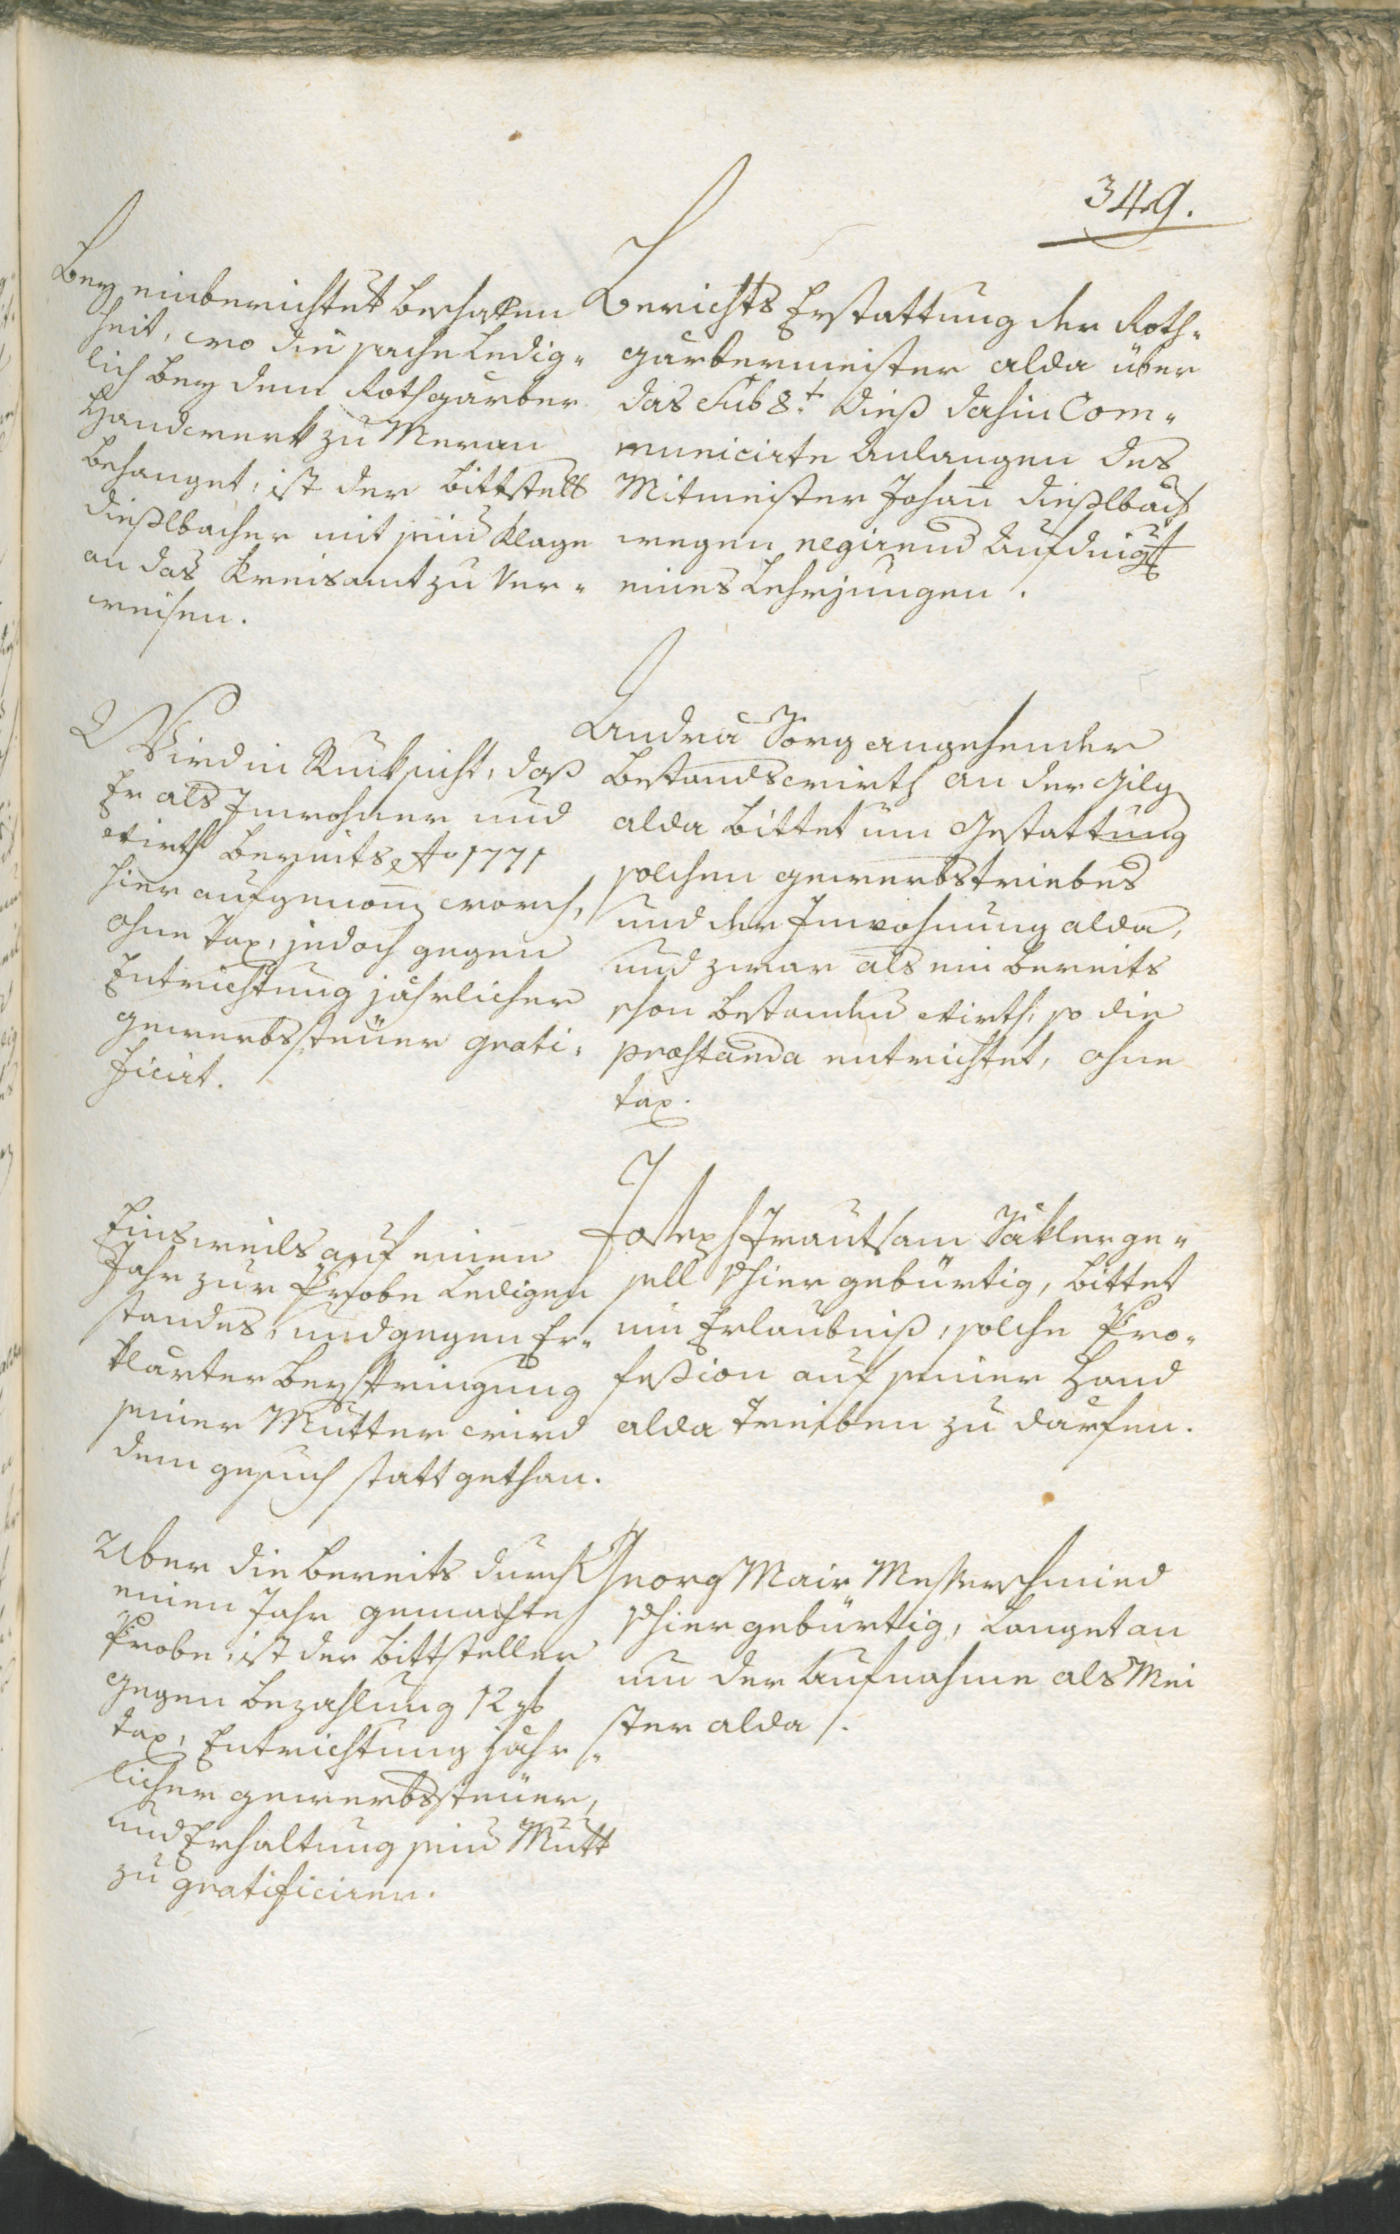 349.
Bey einberichtet Beschaffen
heit, wo die sache Ledig-
lich bey dem Rothgärber
Handwerk zu Meran
behanget, ist der Bittstell
Dießlbacher mit sein Klage
an das Kreisamt zu Ver-
weisen.
Berichts Erstattung der Roth-
gärbermeister alda über
das sub 8t. dieß dahin Com-
municirte Anlangen des
Mitmeister Johan Dießlbach
wegen negirend Aufdingg
eines Lehrjungen.
Wird in Rücksicht, daß
Er als Inwohner und
Wirth bereits Ao 1771
hier aufgenom word,
ohne Tax, jedoch gegen
Entrichtung jährlicher
gewerbssteuer grati-
ficirt.
Andrä Sorg angehender
Bestandswirth an der Gilg
alda bittet um Gestattung
solchen gewerbstriebes
und der Inwohnung alda,
und zwar als ein bereits
schon bestanden Wirth, so die
præstanda entrichtet, ohne
tax.
Einsweils auf einen
Jahr zur Probe Ledigen
standes, und gegen Er-
klärter Beyspringung
seiner Mutter wird
dem gesuch statt gethan.
Joseph Trautsam Säklerge-
sell vhier gebürtig, bittet
um Erlaubniß, solche Pro-
feßion auf seiner Hand
alda Treiben zu därfen.
Uber die bereits durch
einen Jahr gemachte
Probe, ist der Bittsteller
gegen bezahlung 12 f
tax, Entrichtung jähr-
licher gewerbssteuer,
und Erhaltung sein Mutt
zu gratificiren.
Georg Mair Messerschmied
vhier gebürtig, Langet an
um der Aufnahme als Mei
ster alda.